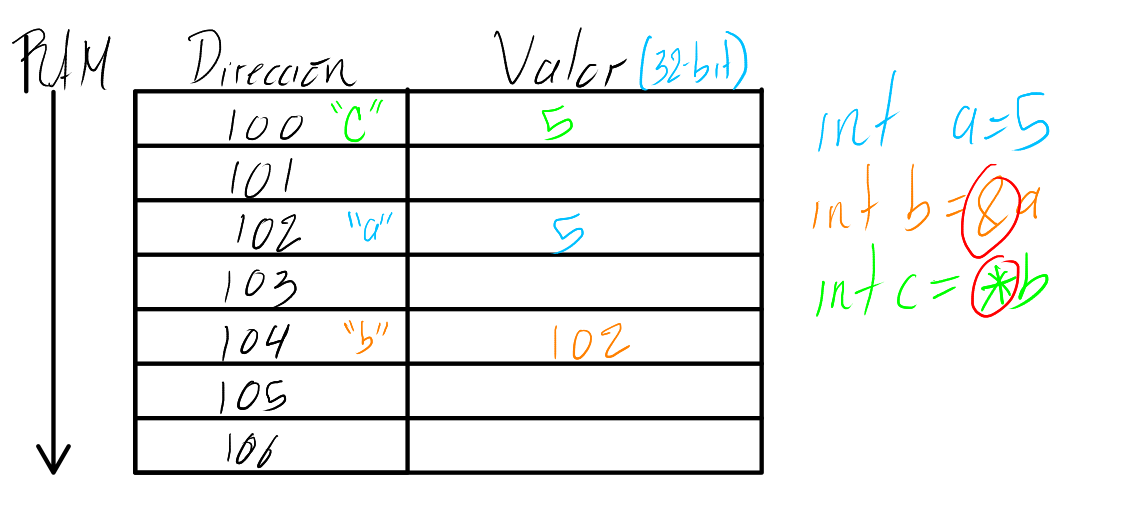 RAM Dirección Valor (32-bit)
100 "C" 5
101
102 "a" 5
103
104 "b" 102
105
106
int a=5
int b=&a
int c=*b